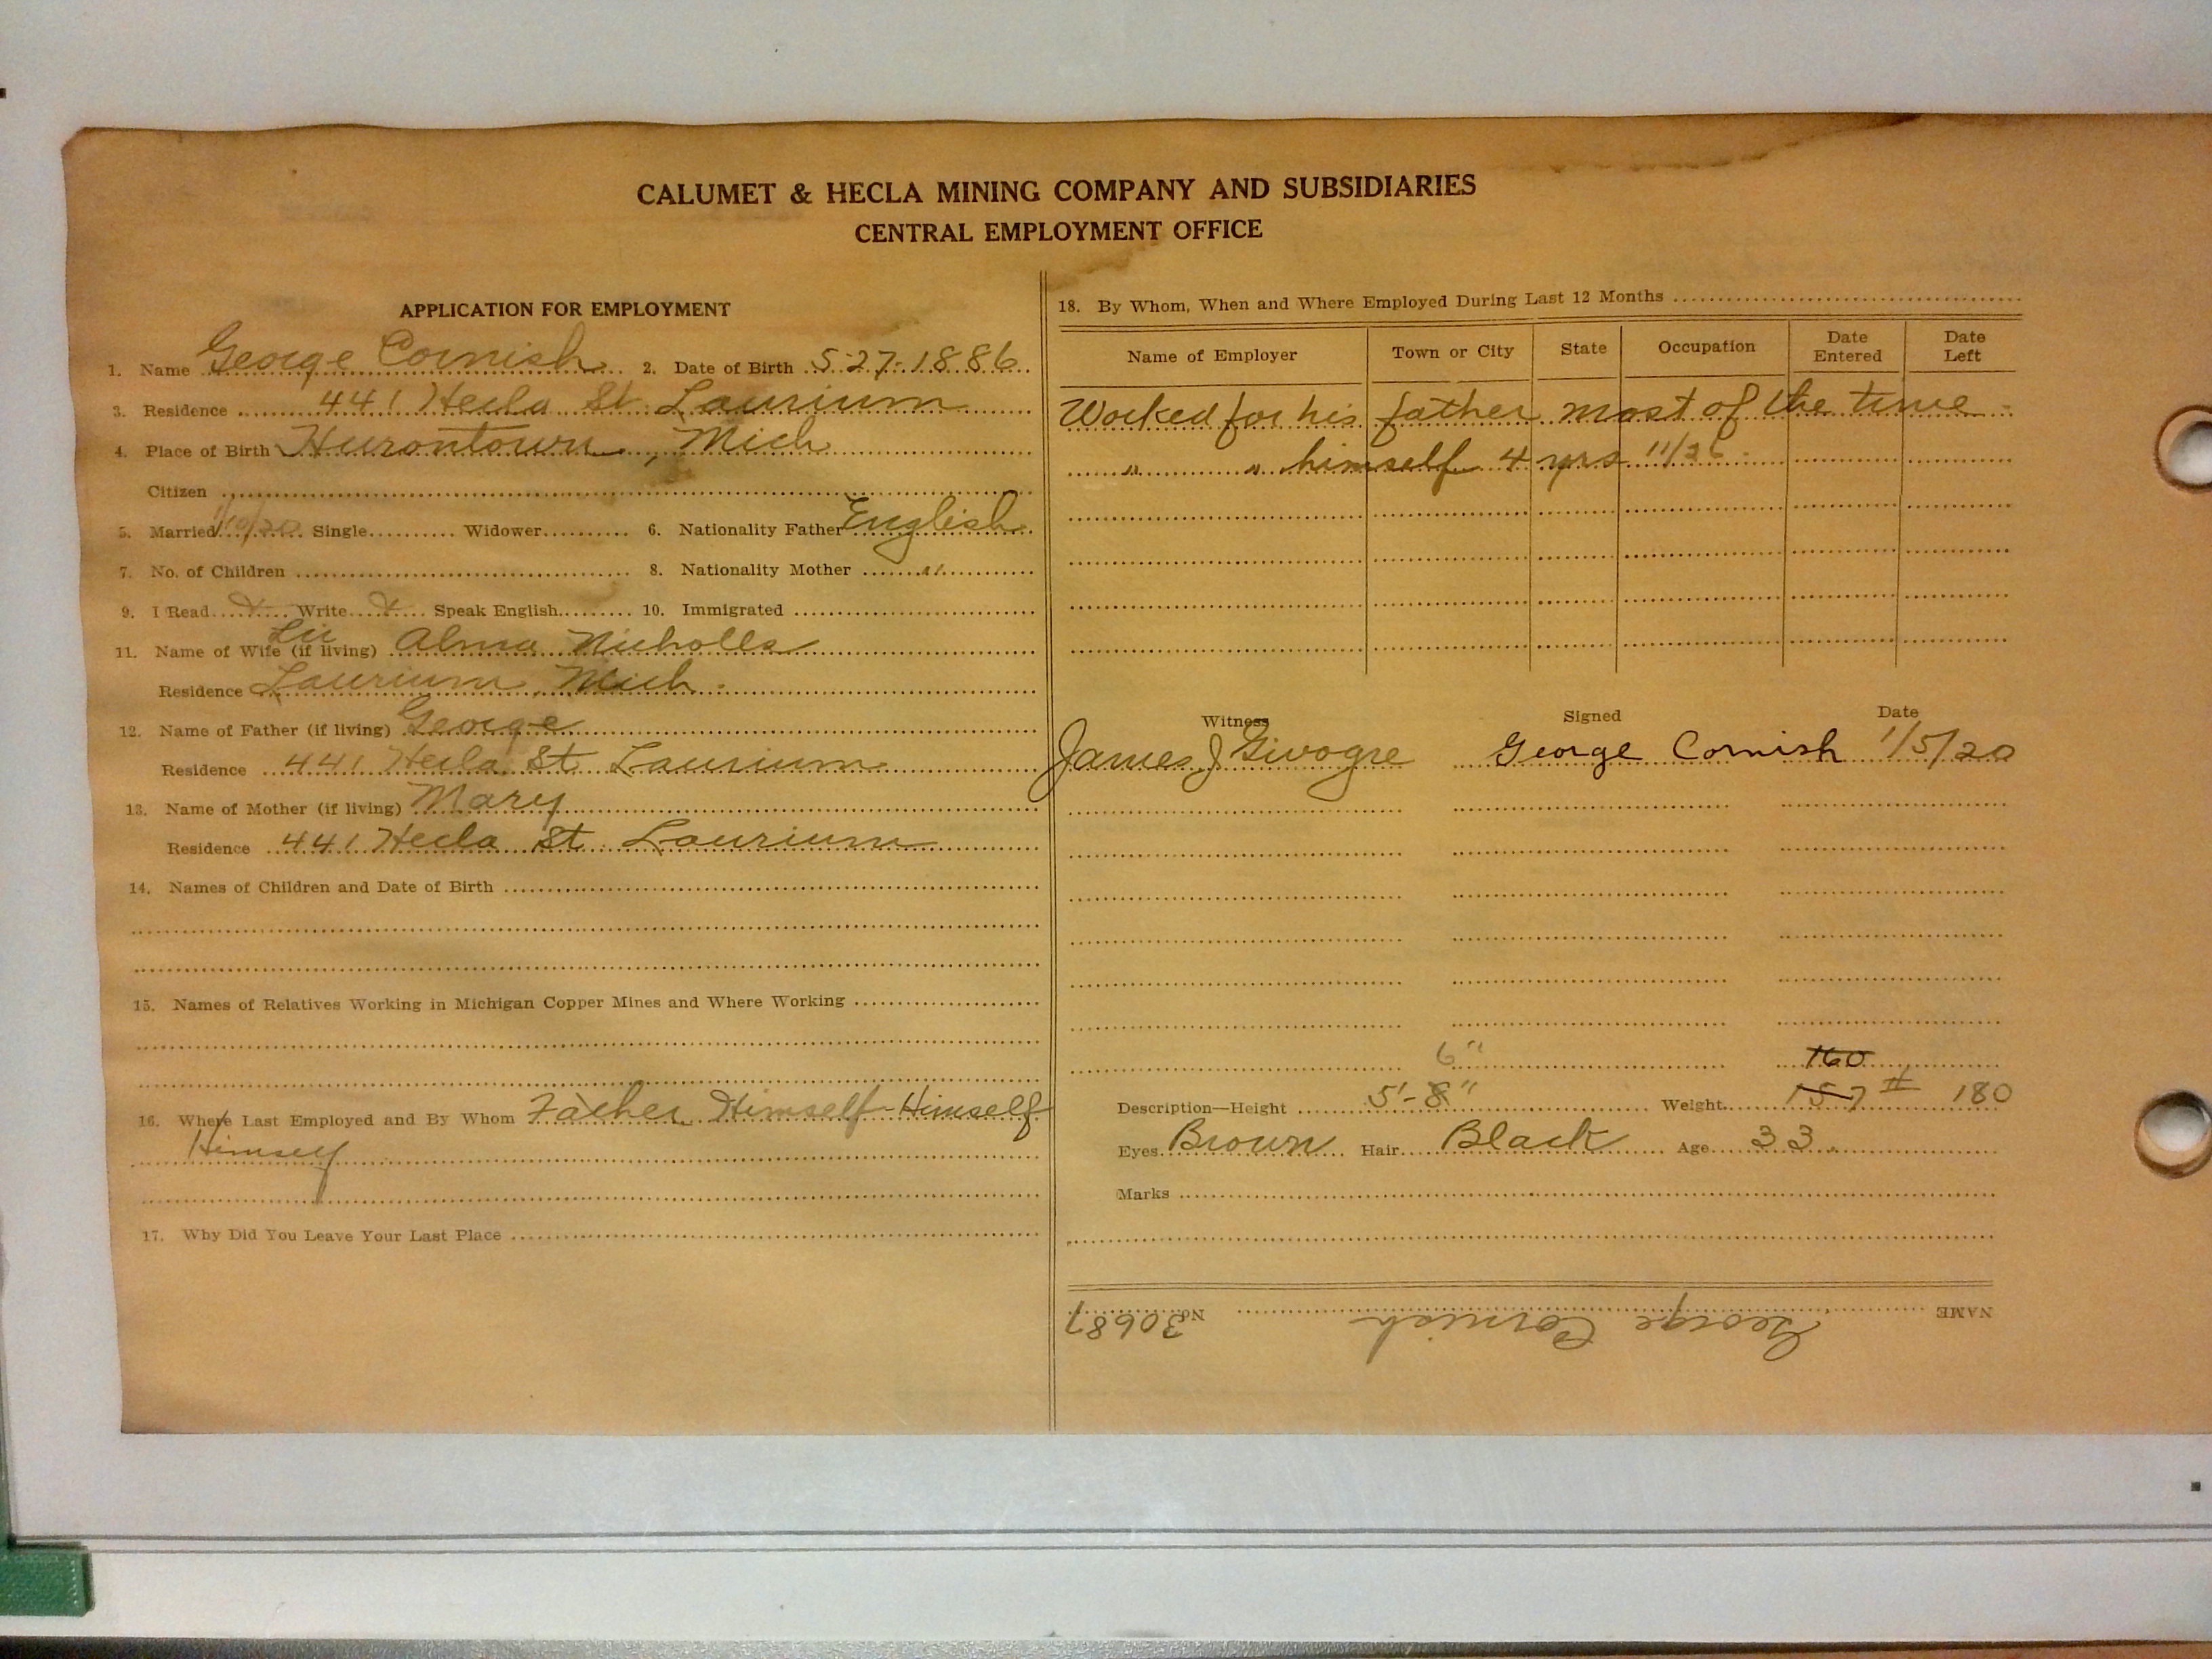 CALUMET & HECLA MINING COMPANY AND SUBSIDIARIES
CENTRAL EMPLOYMENT OFFICE
APPLICATION FOR EMPLOYMENT
1. Name George Cornish 2. Date of Birth 5-27-1886
3. Residence 441 Hecla St Laurium
4. Place of Birth Hurontown, Mich
Citizen
5. Married Single Widower 6. Nationality Father English
7. No. of Children 8. Nationality Mother "
9. I Read Write Speak English 10. Immigrated
11. Name of Wife (if living) Alma Nicholls
Residence Laurium, Mich.
12. Name of Father (if living) George
Residence 441 Hecla St Laurium
13. Name of Mother (if living) Mary
Residence 441 Hecla St Laurium
14. Names of Children and Date of Birth
15. Names of Relatives Working in Michigan Copper Mines and Where Working
16. Where Last Employed and By Whom Father Himself-Himself
Himself
17. Why Did You Leave Your Last Place
18. By Whom, When and Where Employed During Last 12 Months
Name of Employer Town or City State Occupation Date Entered Date Left
Worked for his father most of the time
" " himself 4 yrs 11/26
Witness Signed Date
James J Givogre George Cornish 1/5/20
6" 160
Description—Height 5'-8" Weight 157 # 180
Eyes Brown Hair Black Age 33
Marks
NAME George Cornish No. 30687